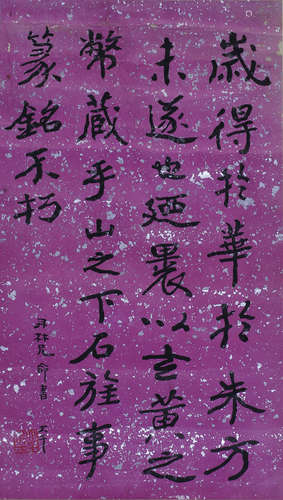 歲得於華於朱方
未遂也廼裹以玄黃之
幣藏乎山之下石旌事
篆銘不朽
命書